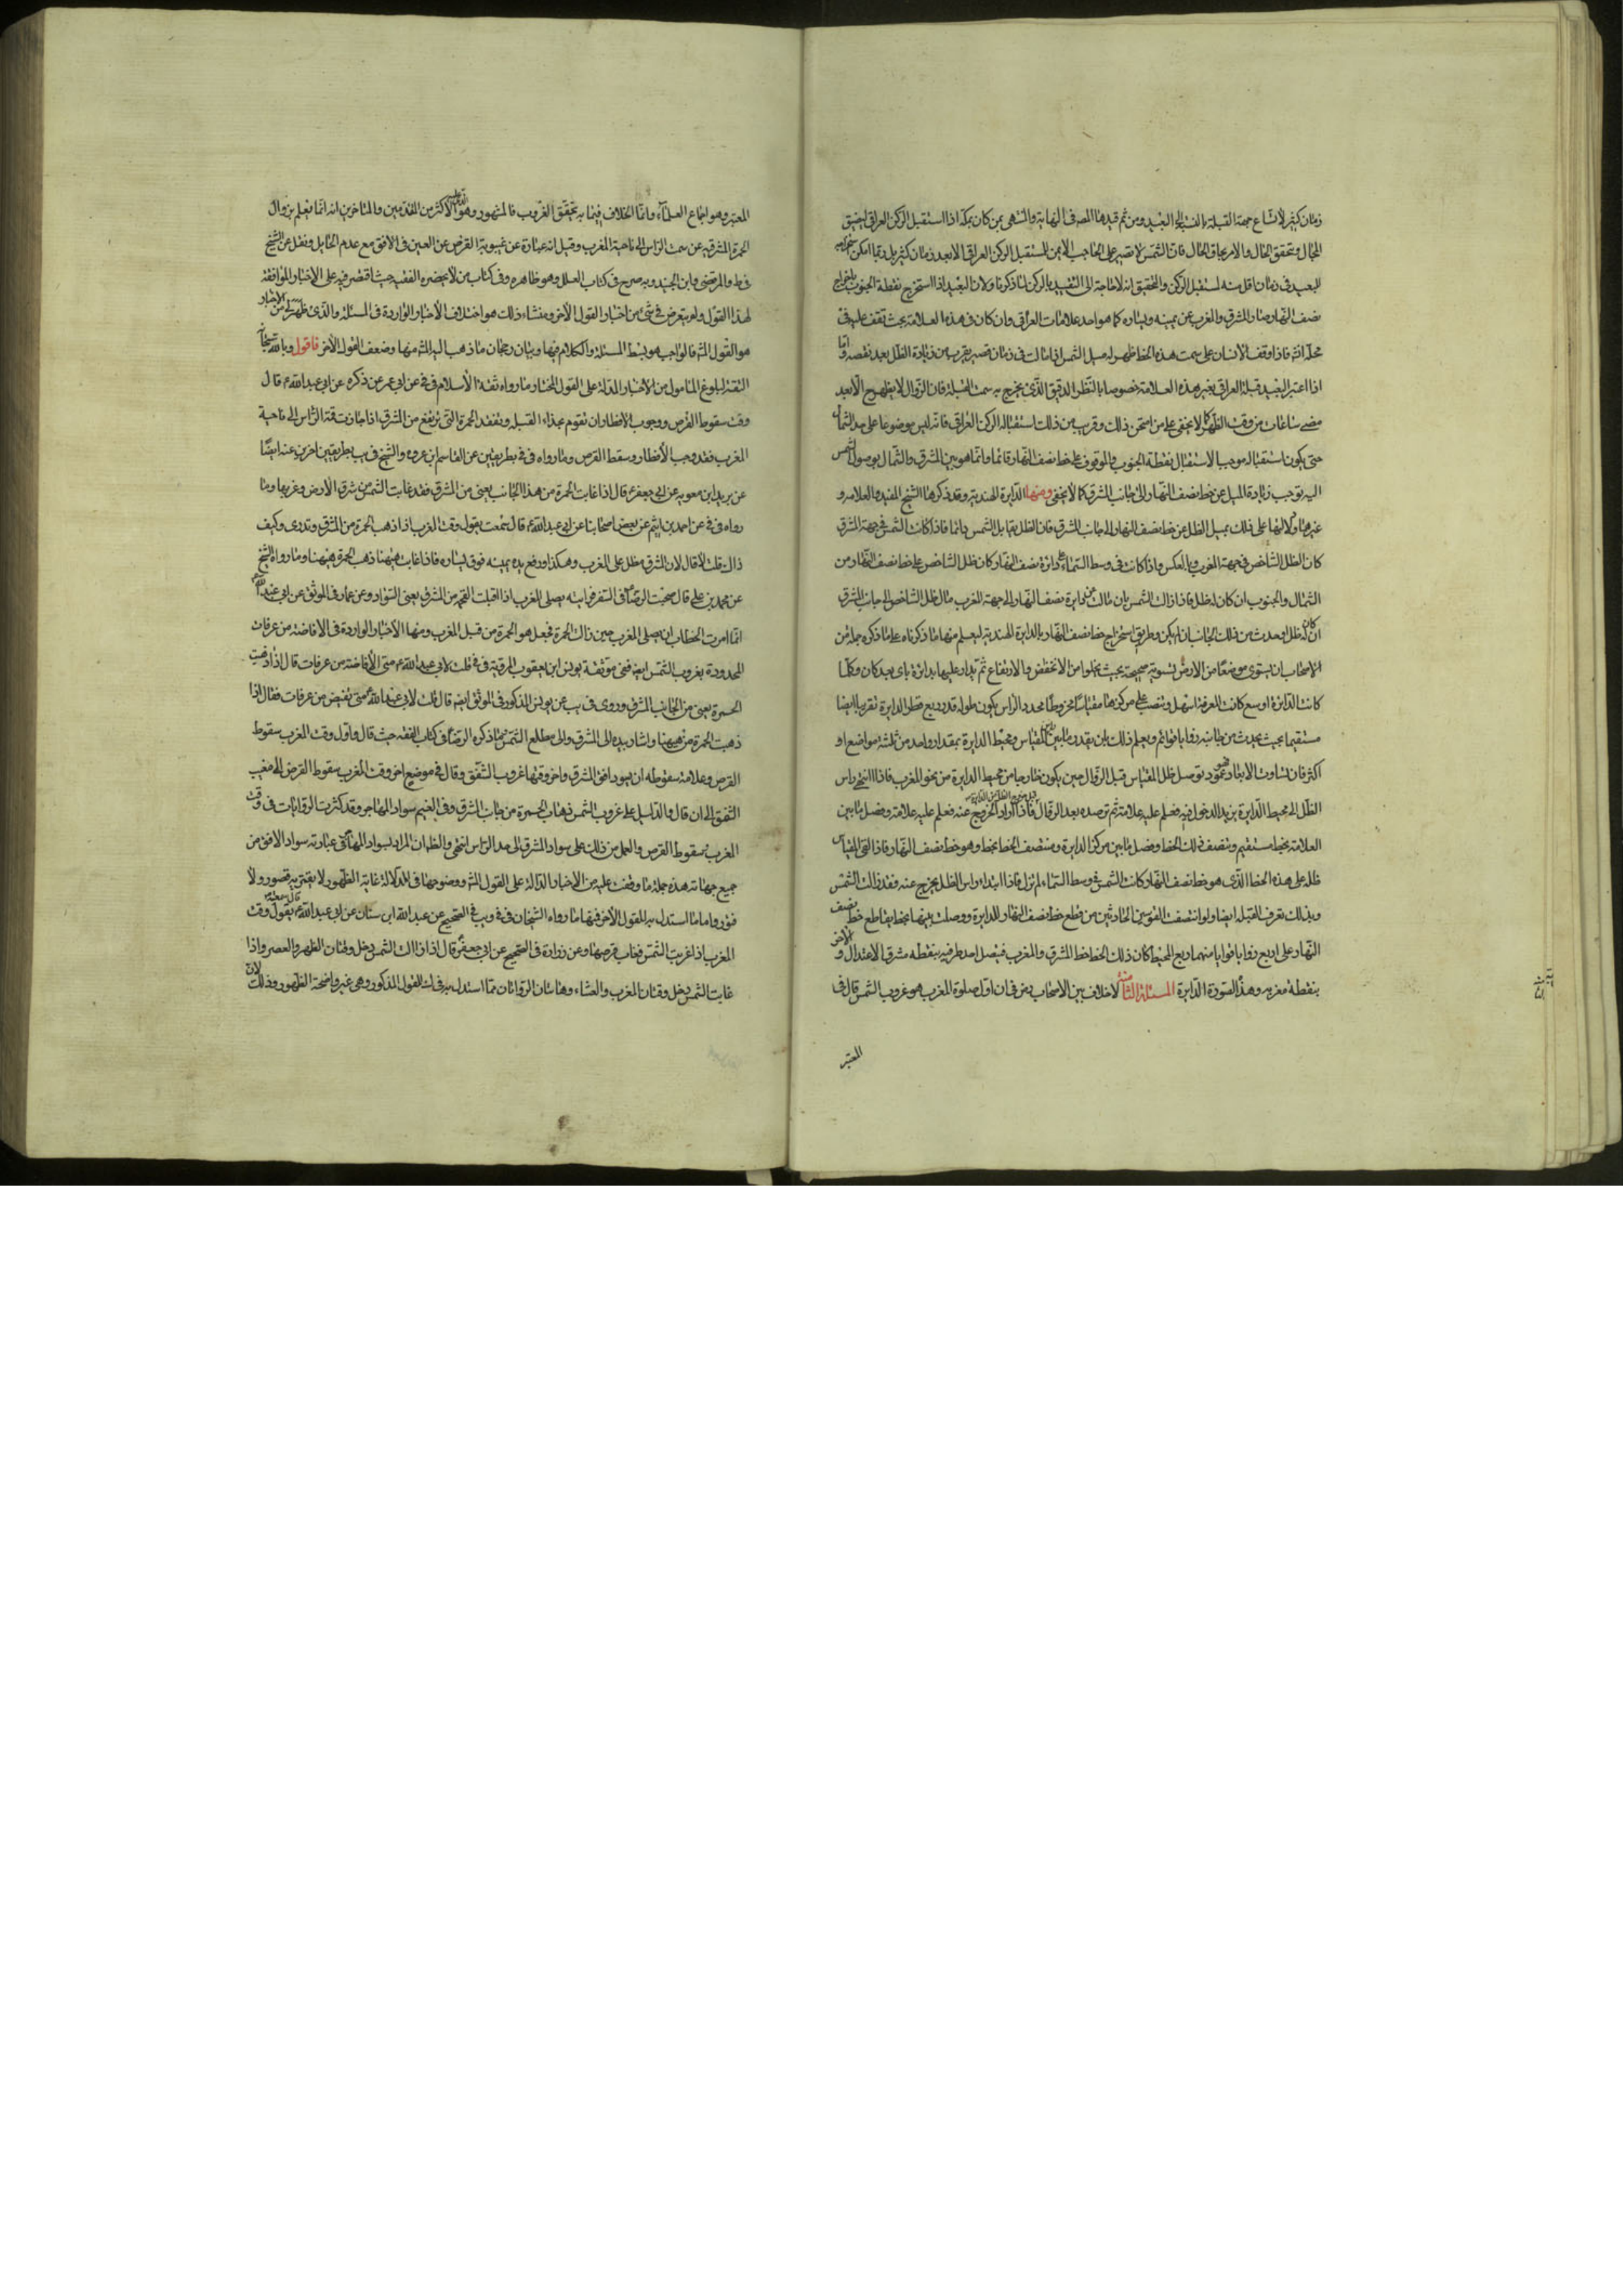 زمان كثير لاتساع جهة القبلة بالنسبة الى البعيد ومن ثم قيدها المصـ فى النهاية والمنتهى بمن كان بمكة اذا استقبل الركن العراقى ليضيق
المجال ويتحقق الحال والامر بحاق الحال فان الشمس لا تصير على الحاجب الايمن لمستقبل الركن العراقى الا بعد زمان كثير بل ربما امكن
للبعيد فى زمان اقل منه لمستقبل الركن والتحقيق انه لا حاجة الى التقييد بالركن لما ذكرنا ولان البعيد اذا استخرج نقطة الجنوب باخراج
نصف النهار صار المشرق والمغرب عن يمينه ويساره كما هو احد علامات العراقى وان كان فى هذه العلامة بحث تقف عليه فى
محله انش فاذا وقف الانسان على سمت هذه الخط ظهر له ميل الشمس اذا مالت فى زمان قصير يقرب من زيادة الظل بعد نقصه واما
اذا اعتبر البعيد قبلة العراقى بغير هذه العلامة خصوصا بالنظر الدقيق الذى يخرج به سمت القبلة فان الزوال لا يظهر ح الا بعد
مضى ساعات من وقت الظهر كما لا يخفى على من امتحن ذلك وقريب من ذلك استقباله الركن العراقى فانه ليس موضوعا على حد الشمال
حتى يكون استقباله موجب الاستقبال نقطة الجنوب والوقوف على خط نصف النهار قائما وانما هو بين المشرق والشمال فوصول الشمس
اليه توجب زيادة الميل عن خط نصف النهار والى جانب المشرق كما لا يخفى ومنها الدائرة الهندية وقد ذكرها الشيخ المفيد والعلامة و
غيرهما ودلالتها على ذلك بميل الظل عن خط نصف النهار الى جانب المشرق فان الظل يقابل الشمس دائما فاذا كانت الشمس فى جهة المشرق
كان الظل الشاخص فى جهة المغرب وبالعكس واذا كانت فى وسط السماء على دائرة نصف النهار كان ظل الشاخص على خط نصف النهار من
الشمال والجنوب ان كان له ظل فاذا زالت الشمس بان مالت عن دايرة نصف النهار الى جهة المغرب مال ظل الشاخص الى جانب المشرق
ان كان له ظل او حدث من ذلك الجانب ان لم يكن وطريق استخراج خط نصف النهار بالدايرة الهندية ليعلم منها ما ذكرناه على ما ذكره جملة من
الاصحاب ان يسوى موضعا من الارض تسوية صحيحة بحيث يخلوا من الانخفض والارتفاع ثم يدار عليها بدايرة باى بعد كان وكلما
كانت الدائرة اوسع كانت المعرفة اسهل وينصب على مركزها مقياسا مخروطا محدد الراس يكون طوله قدر ربع قطر الدايرة تقريبا نصبا
مستقيما بحيث يحدث من جانبه زوايا قوائم ويعلم ذلك بان يقدر ما بين راس المقياس ومحيط الدايرة بمقدار واحد من ثلثة مواضع او
اكثر فان تساوت الابعاد فهو عمود ثم ترصد ظل المقياس قبل الزوال حين يكون خارجا من محيط الدايرة من نحو المغرب فاذا انتهى راس
الظل الى محيط الدايرة يريد الدخول فيه فعلم عليه علامة ثم ترصده بعد الزوال فاذا اراد الخروج عنه فعلم عليه علامة وفصل ما بين
العلامة بخط مستقيم وتنصف ذلك الخط وفصل ما بين مركز الدايرة ومنتصف الخط بخط وهو خط نصف النهار فاذا القى المقياس
ظله على هذه الخط الذى هو خط نصف النهار كانت الشمس فى وسط السماء لم تزل فاذا ابتداء راس الظل يخرج عنه فقد زالت الشمس
وبذلك تعرف القبلة ايضا ولو انتصف القوسين الحادثين من قطع خط نصف النهار للدايرة ووصلت بينها بخط يقاطع خط نصف
النهار على اربع زوايا قوايم منهما ربع المحيط كان ذلك الخط خط المشرق والمغرب فيتصل احد طرفيه بنقطة مشرق الاعتدال والاخر
بنقطة مغربه وهذه صورة الدايرة المسئلة الثامنة لا خلاف بين الاصحاب رض فى ان اول صلوة المغرب هو غروب الشمس قال فى
المعتبر
المعتبر وهو اجماع العلماء وانما الخلاف فيما به يتحقق الغروب فالمشهور وهو الذى عليه الاكثر من المتقدمين والمتاخرين انه انما يعلم بزوال
الحمرة المشرقية عن سمت الراس الى ناحية المغرب وقيل انه عبارة عن غيبوبة القرص عن العين فى الافق مع عدم الحايل ونقل عن الشيخ
فى ط والمرتضى وابن الجنيد وبه صرح فى كتاب العلل وهو ظاهره وفى كتاب من لا يحضره الفقيه حيث اقتصر فيه على الاخبار الموافقة
لهذا القول ولم يتعرض فى شئ من اخبار القول الاخر ومنشاء ذلك هو اختلاف الاخبار الواردة فى المسئلة والذى ظهر لى من الاخبار
هو القول الشـ فالواجب هو بسط المسئلة والكلام فيها وبيان رجحان ما ذهب اليه الشـ منها وضعف القول الاخر فاقول وبالله سبحانه
الثقة لبلوغ المامول من الاخبار الدالة على القول المختار ما رواه ثقة الاسلام فى فى عن ابى عمير عن ذكره عن ابى عبد الله ع قال
وقت سقوط القرص ووجوب الافطار ان تقوم بحذاء القبلة وتفقد الحمرة التى ترتفع من المشرق اذا جازت قمة الراس الى ناحية
المغرب فقد وجب الافطار وسقط القرص وما رواه فى فى بطريقين عن القاسم بن عروه والشيخ فى يب بطريقين اخرين عنه ايضا
عن بريد ابن معويه عن ابى جعفر ع قال اذا غابت الحمرة من هذا الجانب يعنى من المشرق فقد غابت الشمس من شرق الارض وغربها وما
رواه فى فى عن احمد بن اشيم عن بعض اصحابنا عن ابى عبد الله ع قال سمعته يقول وقت المغرب اذا ذهب الحمرة من المشرق وتدرى وكيف
ذاك قلت لا قال لان المشرق مطل على المغرب وهكذا ورفع يده يمينه فوق يساره فاذا غابت هيهنا ذهب الحمرة هيهنا وما رواه الشيخ
عن محمد بن على قال صحبت الرضا ع فى السفر فرايته يصلى المغرب اذا اقبلت الفحمة من المشرق يعنى السواد وعن عمار فى الموثق عن ابى عبد الله ع
انما امرت ابا الخطاب ان يصلى المغرب حين زالت الحمرة فجعل هو الحمرة من قبل المغرب ومنها الاخبار الواردة فى الافاضة من عرفات
المحدودة بغروب الشمس ايضـ ففى موثقة يونس ابن يعقوب المروية فى فى قلت لابى عبد الله ع متى الافاضة من عرفات قال اذا ذهبت
الحمرة يعنى من الجانب المشرق وروى فى يب عن يونس المذكور فى الموثق ايضـ قال قلت لابى عبد الله ع متى تفيض من عرفات فقال اذا
ذهبت الحمرة من هيهنا واشار بيده الى المشرق والى مطلع الشمس وما ذكره الرضا ع فى كتاب الفقه حيث قال واول وقت المغرب سقوط
القرص وعلامة سقوطه ان يسود افق المشرق واخر وقتها غروب الشفق وقال فى موضع اخر وقت المغرب سقوط القرص الى مغيب
الشفق الى ان قال والدليل على غروب الشمس ذهاب الحمرة من جانب المشرق وفى الغيم سواد المهاجر وقد كثرت الروايات فى وقت
المغرب وسقوط القرص والعمل من ذلك على سواد المشرق الى حد الراس انتهى والظـ ان المراد بسواد المهاجر فى عبارته سواد الافق من
جميع جهاته هذه جملة ما وقفت عليه من الاخبار الدالة على القول الشـ ووضوحها فى الدلالة غاية الظهور لا يعتريه قصور ولا
فتور واما ما استدل به للقول الاخر فمنها ما رواه الشيخان فى فى ويب فى الصحيح عن عبد الله ابن سنان عن ابى عبد الله ع قال سمعته يقول وقت
المغرب اذا غربت الشمس فغاب قرصها وعن زرارة فى الصحيح عن ابى جعفر ع قال اذا زالت الشمس دخل وقتان الظهر والعصر واذا
غابت الشمس دخل وقتان المغرب والعشاء وهاتان الروايتان مما استدل به فى لك للقول المذكور وهى غير واضحة الظهور وذلك لان